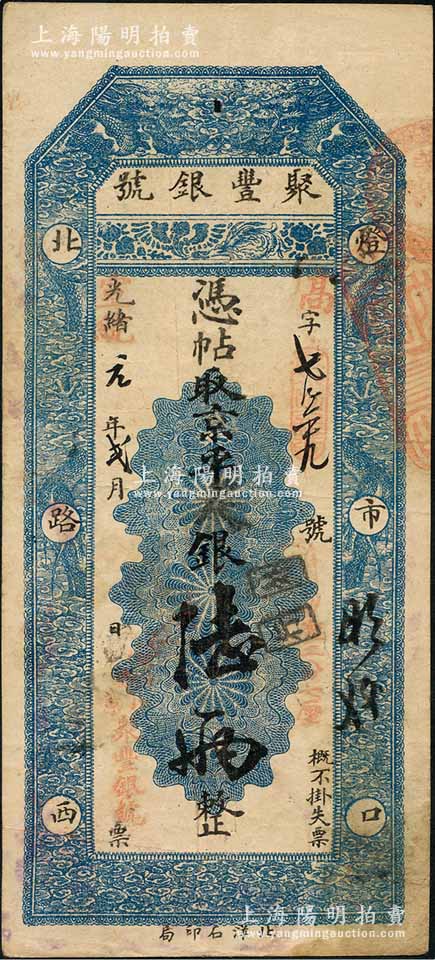 上海陽明拍賣
www.yangmingauction.com
聚豐銀號
燈市口
北路西
字
號
憑帖取京平足銀陸兩整
光緒元年弍月
日
票
概不掛失票
聚豐銀號
上海陽明拍賣
www.yangmingauction.com
石印局
上海陽明拍賣
www.yangmingauction.com